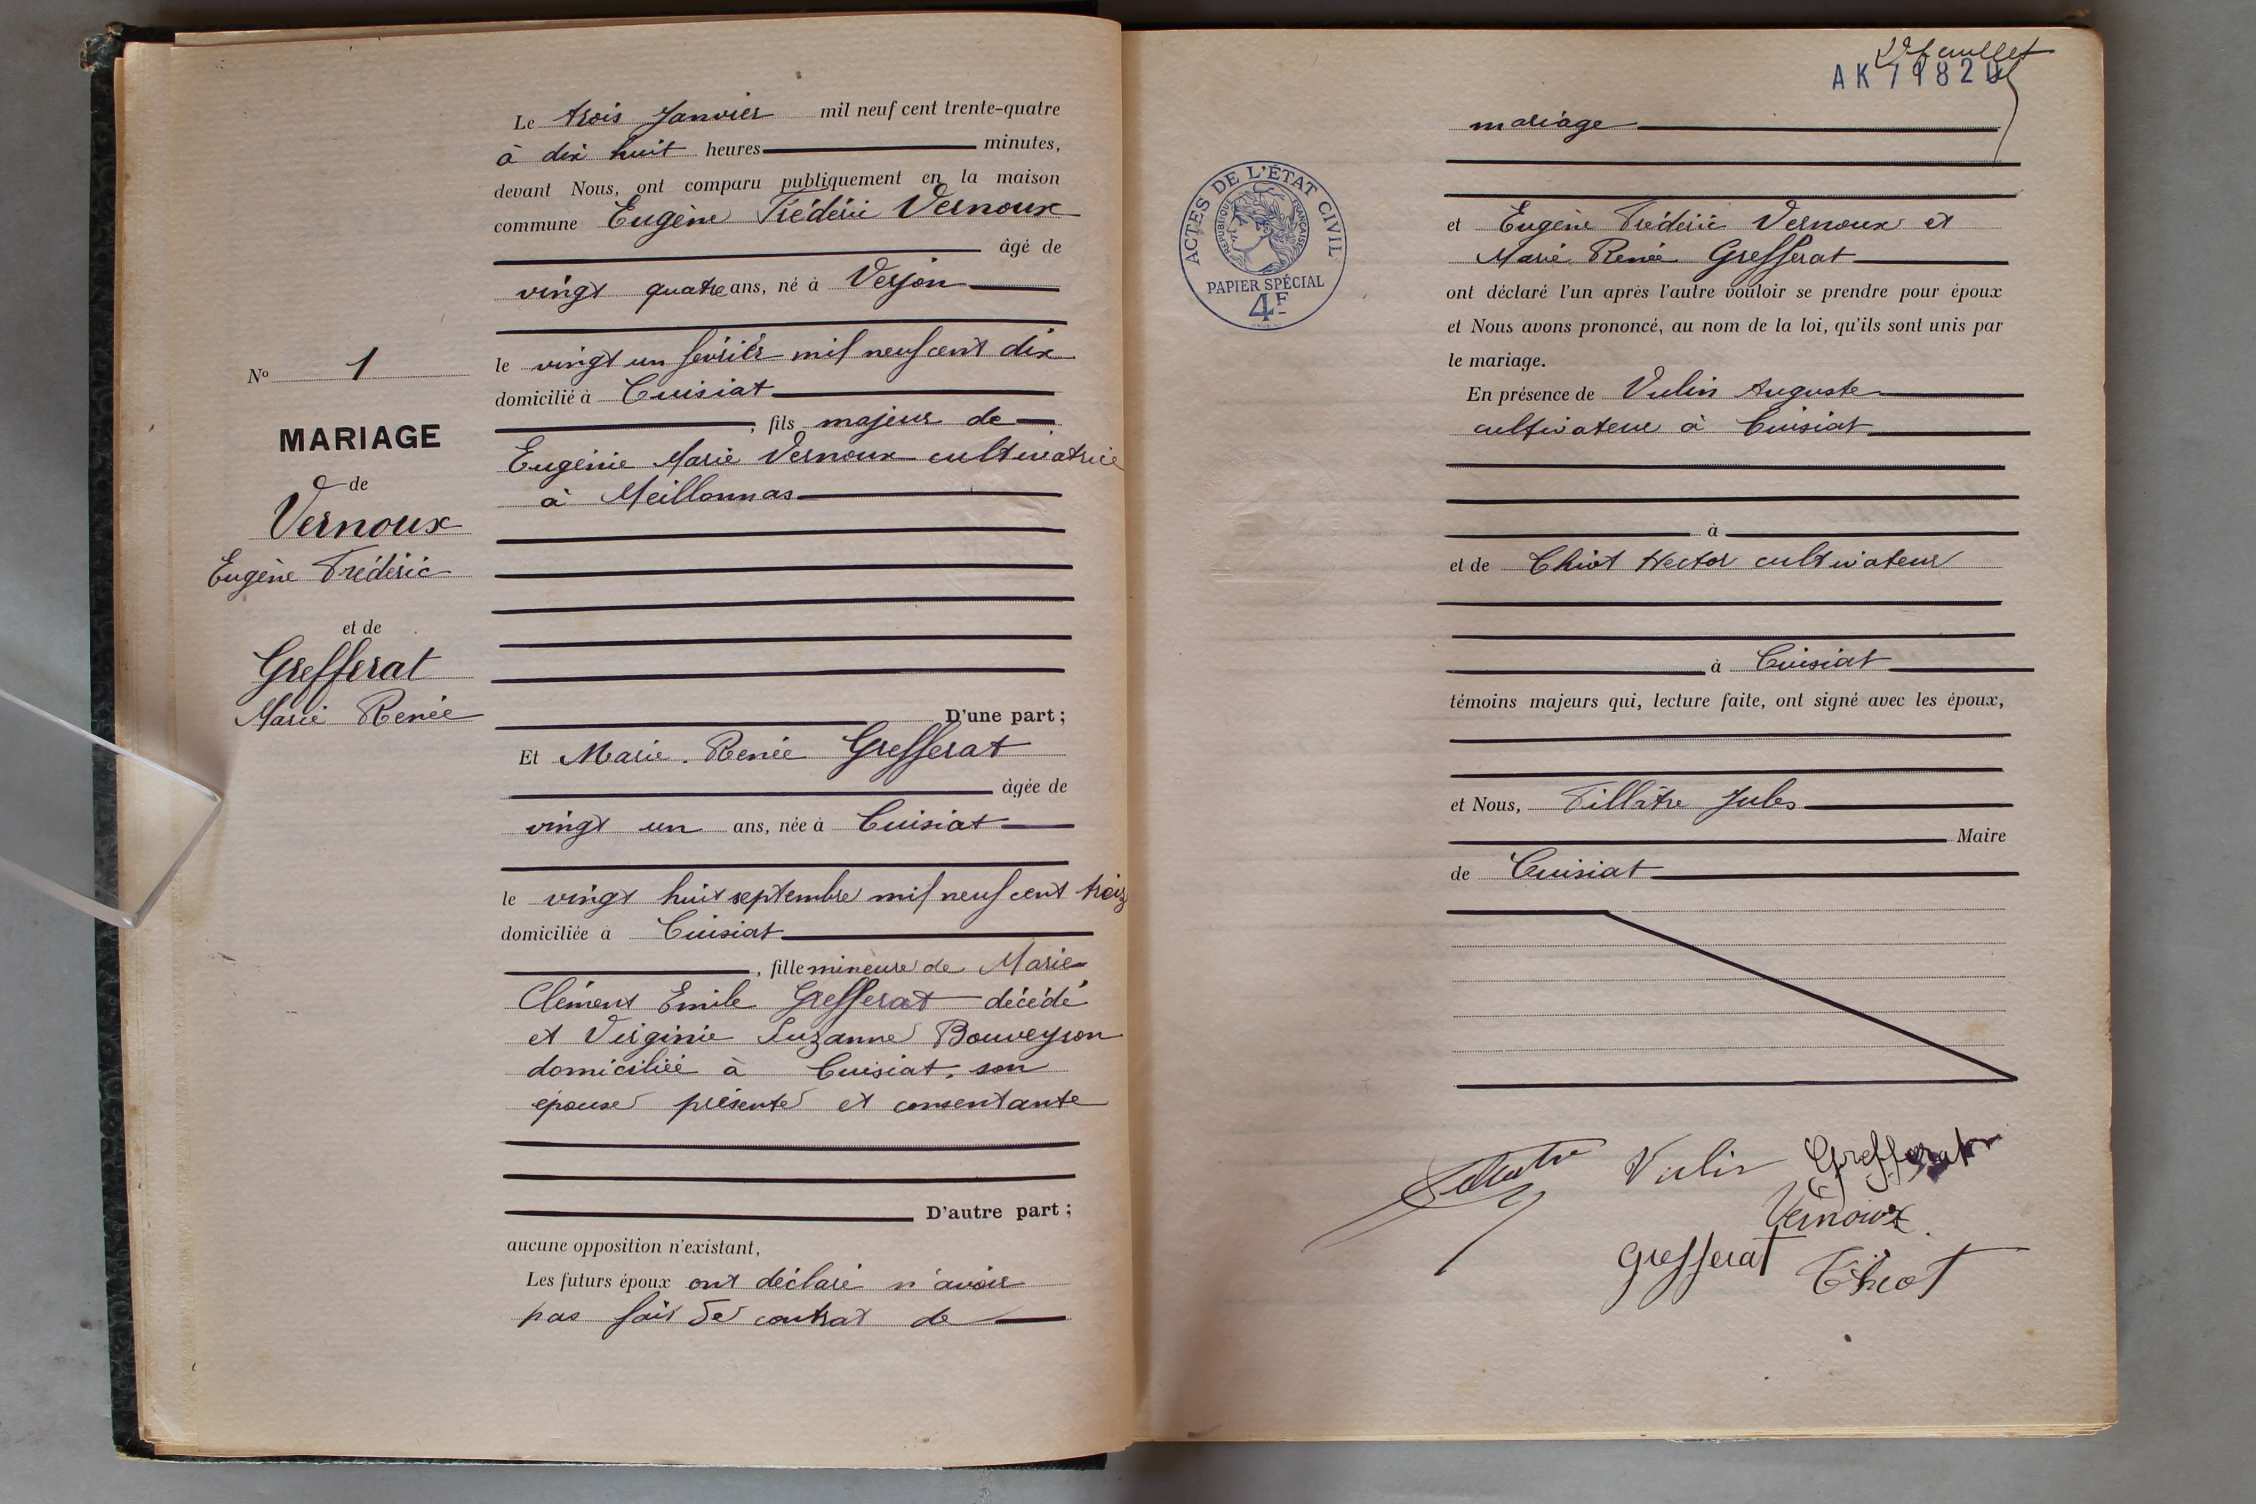 Le trois Janvier mil neuf cent trente-quatre
à dix huit heures minutes,
devant Nous, ont comparu publiquement en la maison
commune Eugène Frédéric Vernoux
âgé de
vingt quatre ans, né à Verjon
le vingt un février mil neuf cent dix
domicilié à Cuisiat
, fils majeur de
Eugénie Marie Vernoux cultivatrice
à Meillonnas
D'une part ;
Et Marie. Renée Grefferat
âgée de
vingt un ans, née à Cuisiat
le vingt huit septembre mil neuf cent treiz
domiciliée à Cuisiat
, fille mineure de Marie
Clément Emile Grefferat décédé
et Virginie Suzanne Bouveyron
domiciliée à Cuisiat, son
épouse présente et consentante
D'autre part ;
aucune opposition n'existant,
Les futurs époux ont déclaré n'avoir
pas fait de contrat de
No 1
MARIAGE
de
Vernoux
Eugène Frédéric
et de
Grefferat
Marie Renée
2e feuillet
AK 71820
mariage
et Eugène Frédéric Vernoux et
Marie Renée Grefferat
ont déclaré l'un après l'autre vouloir se prendre pour époux
et Nous avons prononcé, au nom de la loi, qu'ils sont unis par
le mariage.
En présence de Vulin Auguste
cultivateur à Cuisiat
à
et de Chiot Hector cultivateur
à Cuisiat
témoins majeurs qui, lecture faite, ont signé avec les époux,
et Nous, Tillâtre Jules
Maire
de Cuisiat
ACTES DE L'ÉTAT CIVIL
RÉPUBLIQUE FRANÇAISE
PAPIER SPÉCIAL
4F
Vulin Grefferat
Vernoux
Grefferat Chiot